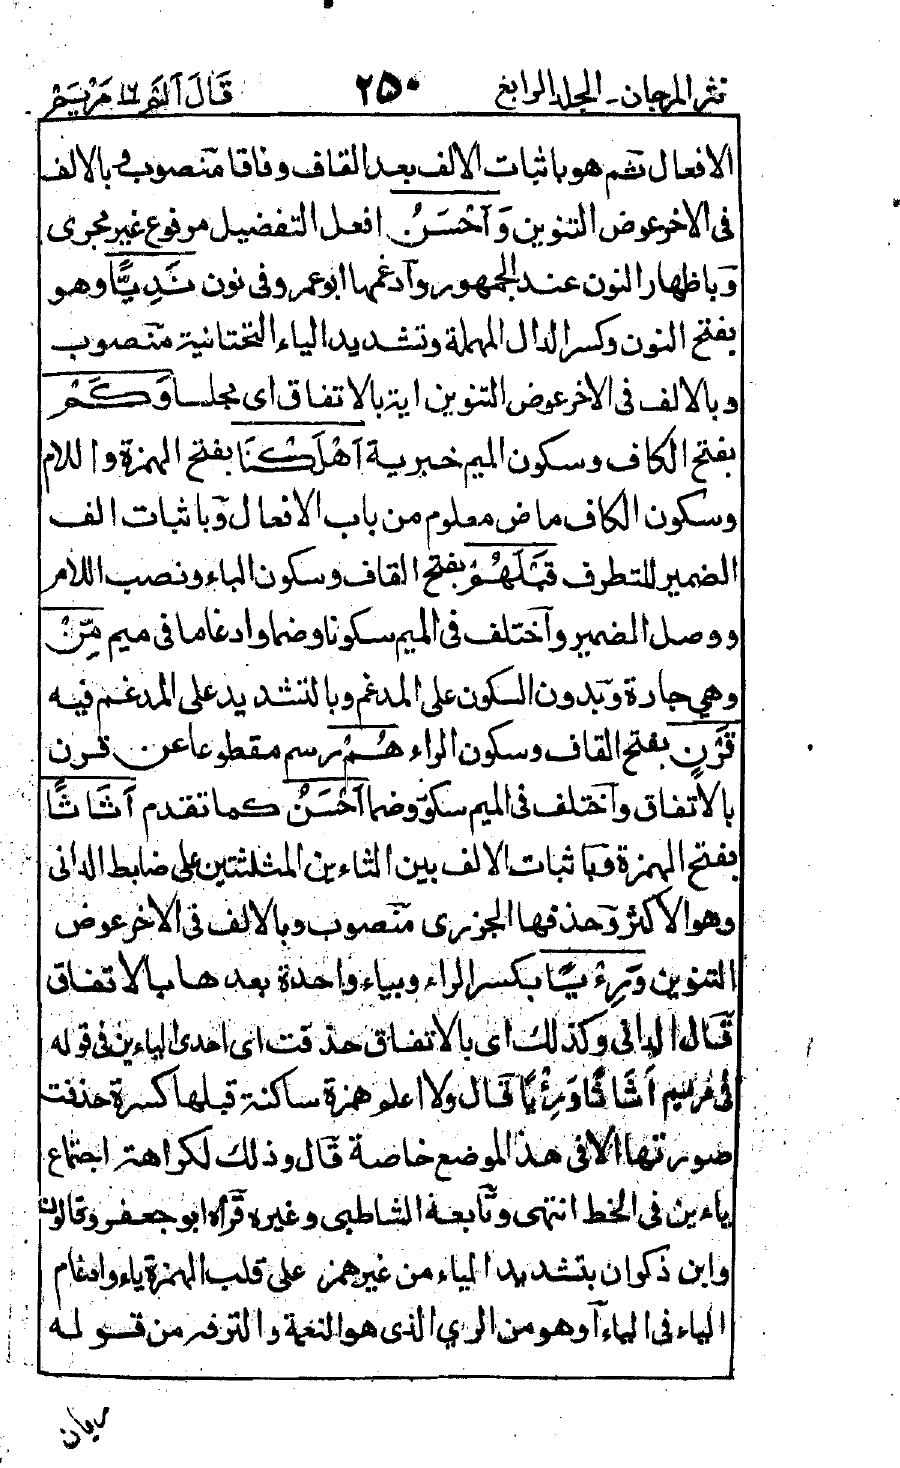 نثر المرجان ـ الجلد الرابع ٢٥٠ قَالَ اَلَمْ ١٦ مَرْيَمْ
الافعال تثم هو باثبات الالف بعد القاف وفاقا منصوب وبالالف
فى الاخر عوض التنوين وَاَحْسَنُ افعل التفضيل مرفوع غير مجرى
وباظهار النون عند الجمهور وادغمها ابو عمرو فى نون نَدِيًّا وهو
بفتح النون وكسر الدال المهملة وتشديد الياء التحتانية منصوب
وبالالف فى الاخر عوض التنوين اية بالاتفاق اى مجلسا وَكَمْ
بفتح الكاف وسكون الميم خبرية اَهْلَكْنَا بفتح الهمزة واللام
وسكون الكاف ماض معلوم من باب الافعال وباثبات الف
الضمير للتطرف قَبْلَهُمْ بفتح القاف وسكون الباء ونصب اللام
ووصل الضمير واختلف فى الميم سكونا وضما وادغاما فى ميم مِّنْ
وهي جارة وبدون السكون على المدغم وبالتشديد على المدغم فيه
قَرْنٍ بفتح القاف وسكون الراء هُمْ رسم مقطوعا عن قرن
بالاتفاق واختلف فى الميم سكونا وضما اَحْسَنُ كما تقدم اَثَاثًا
بفتح الهمزة وباثبات الالف بين الثاءين المثلثتين على ضابط الدانى
وهو الاكثر وحذفها الجزرى منصوب وبالالف فى الاخر عوض
التنوين وَرِءْيًا بكسر الراء وبياء واحدة بعدها بالاتفاق
قال الدانى وكذلك اى بالاتفاق حذفت اى احدى الياءين فى قوله
فى مريم اَثَاثًا وَرِءْيًا قال ولا اعلم همزة ساكنة قبلها كسرة حذفت
صورتها الا فى هذا الموضع خاصة قال وذلك لكراهة اجتماع
ياءين فى الخط انتهى وتابعه الشاطبى وغيره قرأه ابو جعفر وقالون
وابن ذكوان بتشديد الياء من غير همز على قلب الهمزة ياء وادغام
الياء فى الياء او هو من الري الذى هو النعمة والترفه من قوله